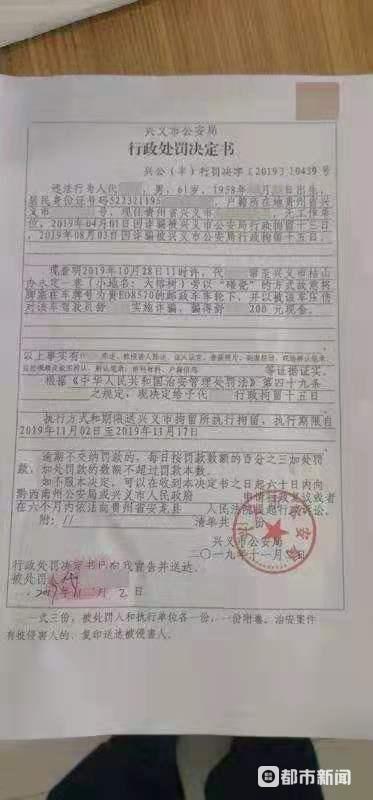 兴义市公安局
行政处罚决定书
兴公（丰）行罚决字［2019］10439号
违法行为人代 ，男，61岁，1958年 月 日出生，
居民身份证号码522321195 ，户籍所在地贵州省兴
义市 号，现住贵州省兴义市 ，无工作单
位，2019年04月01日因诈骗被兴义市公安局行政拘留十三日，
2019年08月03日因诈骗被兴义市公安局行政拘留十五日。
现查明2019年10月28日11时许，代 窜至兴义市桔山
办永定一巷（小地名：大榕树）旁以“碰瓷”的方式故意将
脚塞在车牌号为贵E08570的邮政车车轮下，并以被该车压伤
对该车驾驶员舒 实施诈骗，骗得舒 200元现金。
以上事实有 等证据证实。
根据《中华人民共和国治安管理处罚法》第四十九条
之规定，现决定给予代 行政拘留十五日
执行方式和期限送兴义市拘留所执行拘留，执行期限自
2019年11月02日至2019年11月17日
逾期不交纳罚款的，每日按罚款数额的百分之三加处罚
款，加处罚款的数额不超过罚款本数。
如不服本决定，可以在收到本决定书之日起六十日内向
黔西南州公安局或兴义市人民政府 申请行政复议或者
在六个月内依法向贵州省安龙县 人民法院提起行政诉讼。
附：// 清单共 份
兴义市公安局
二〇一九年十一月 日
行政处罚决定书已向我宣告并送达。
被处罚人
2019年11月2日
一式三份，被处罚人和执行单位各一份，一份附卷。治安案件
有被侵害人的，复印送达被侵害人。
都市新闻